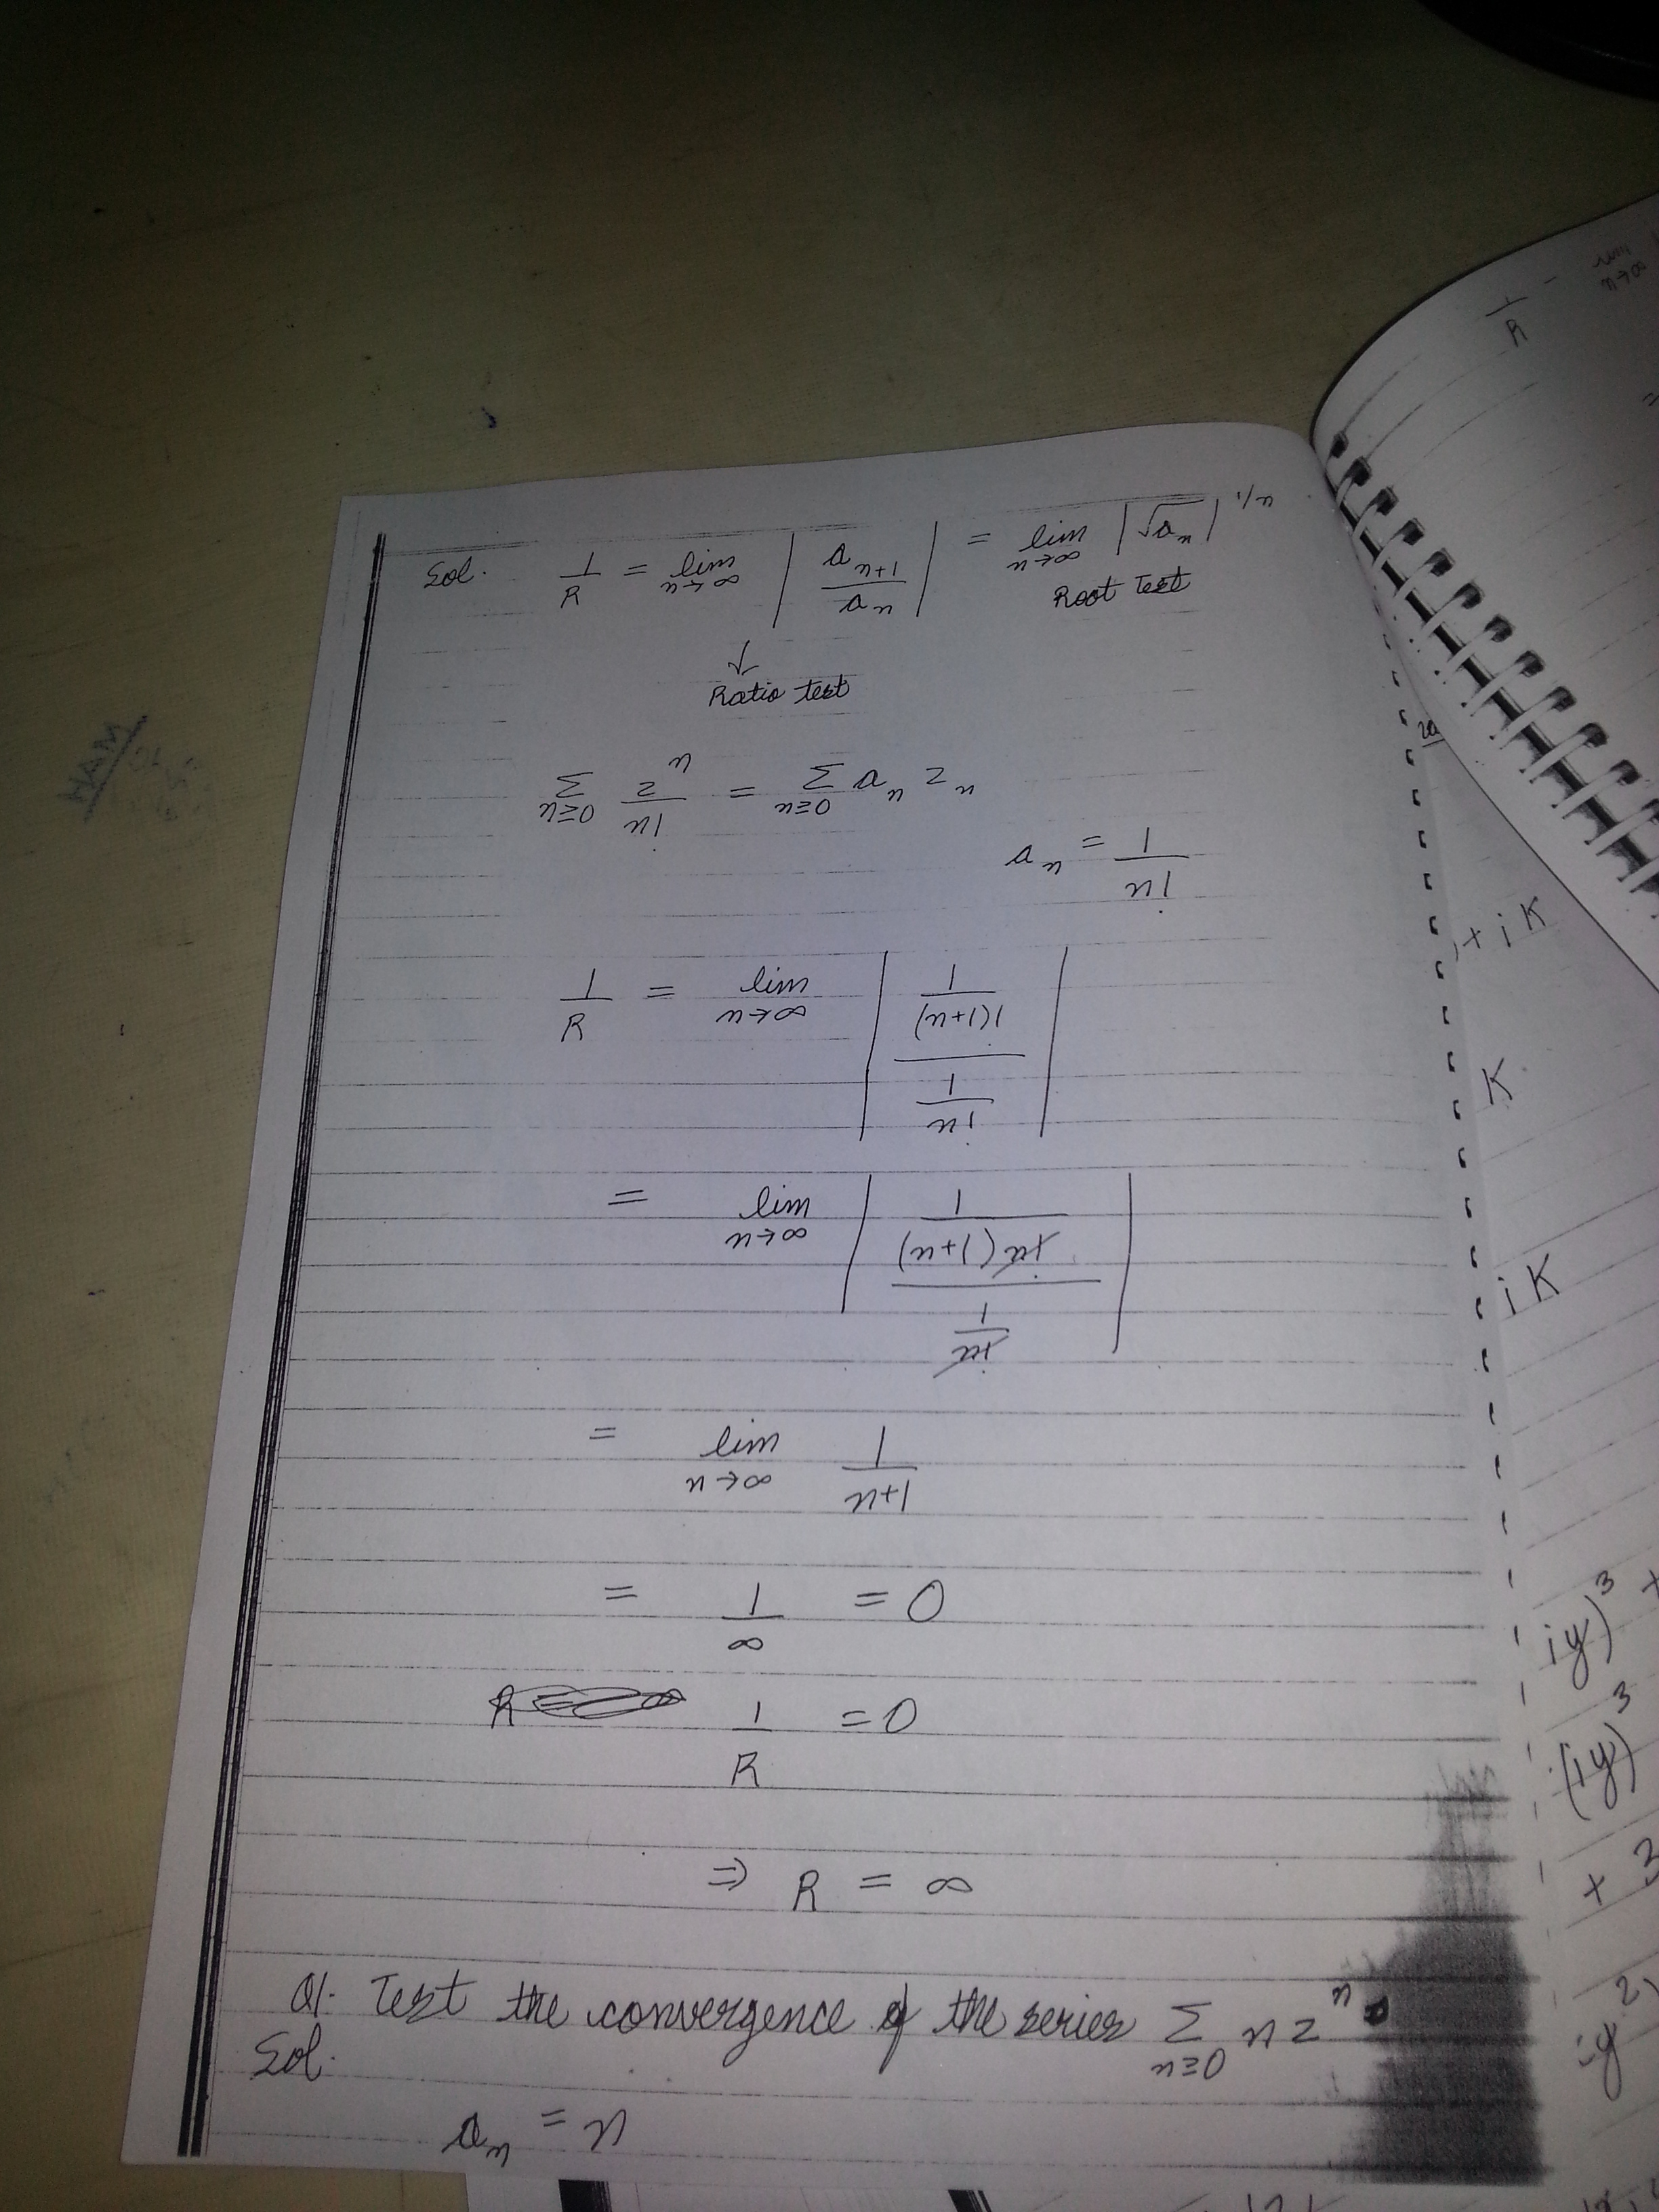 Sol. 1/R = lim n→∞ | a_{n+1} / a_n | = lim n→∞ |√a_n|^{1/n}
Root test
↓
Ratio test
Σ n≥0 z^n / n! = Σ n≥0 a_n z_n
a_n = 1 / n!
1/R = lim n→∞ | (1/(n+1)!) / (1/n!) |
= lim n→∞ | (1/((n+1) n!)) / (1/n!) |
= lim n→∞ 1/(n+1)
= 1/∞ = 0
1/R = 0
⇒ R = ∞
Q1. Test the convergence of the series Σ n≥0 n z^n
Sol.
a_n = n
1/R - lim n→∞
+ i K
K
i K
iy)^3 +
(iy)^3
+ 3